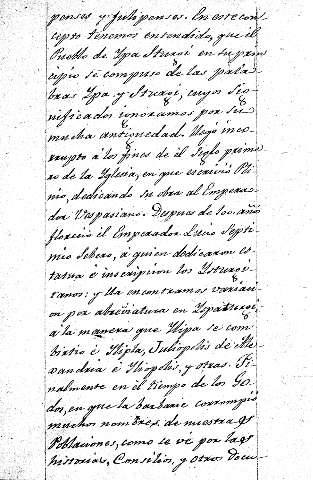 penses y Julipenses. En este con
cepto tenemos entendido, que el
Pueblo de Ypa Sturgi en su prin
cipio se compuso de las pala
bras Ypa, y Sturgi, cuyos sig
nificados ignoramos por su
mucha antiguedad. Llegó incor
rupto á los fines de el Siglo prime
ro de la Yglesia, en que escrivió Pli
nio, dedicando su obra al Empera
dor Vespasiano. Despues de 100. años
floreció el Emperador Lucio Septi
mio Sebero, á quien dedicaron es
tatua é inscripcion los Ysturgi
tanos: y Ua encontramos variaci
on por abreviatura en Ypasturgi,
á la manera que Ylipa se com
birtió é Ylipla, Juliopolis de Ale
xandria é Yliopolis, y otras. Fi
nalmente en el tiempo de los Go
dos, en que la barbarie corrompió
muchos nombres de nuestras
Poblaciones, como se vé por las
historias, Consilios, y otros Docu